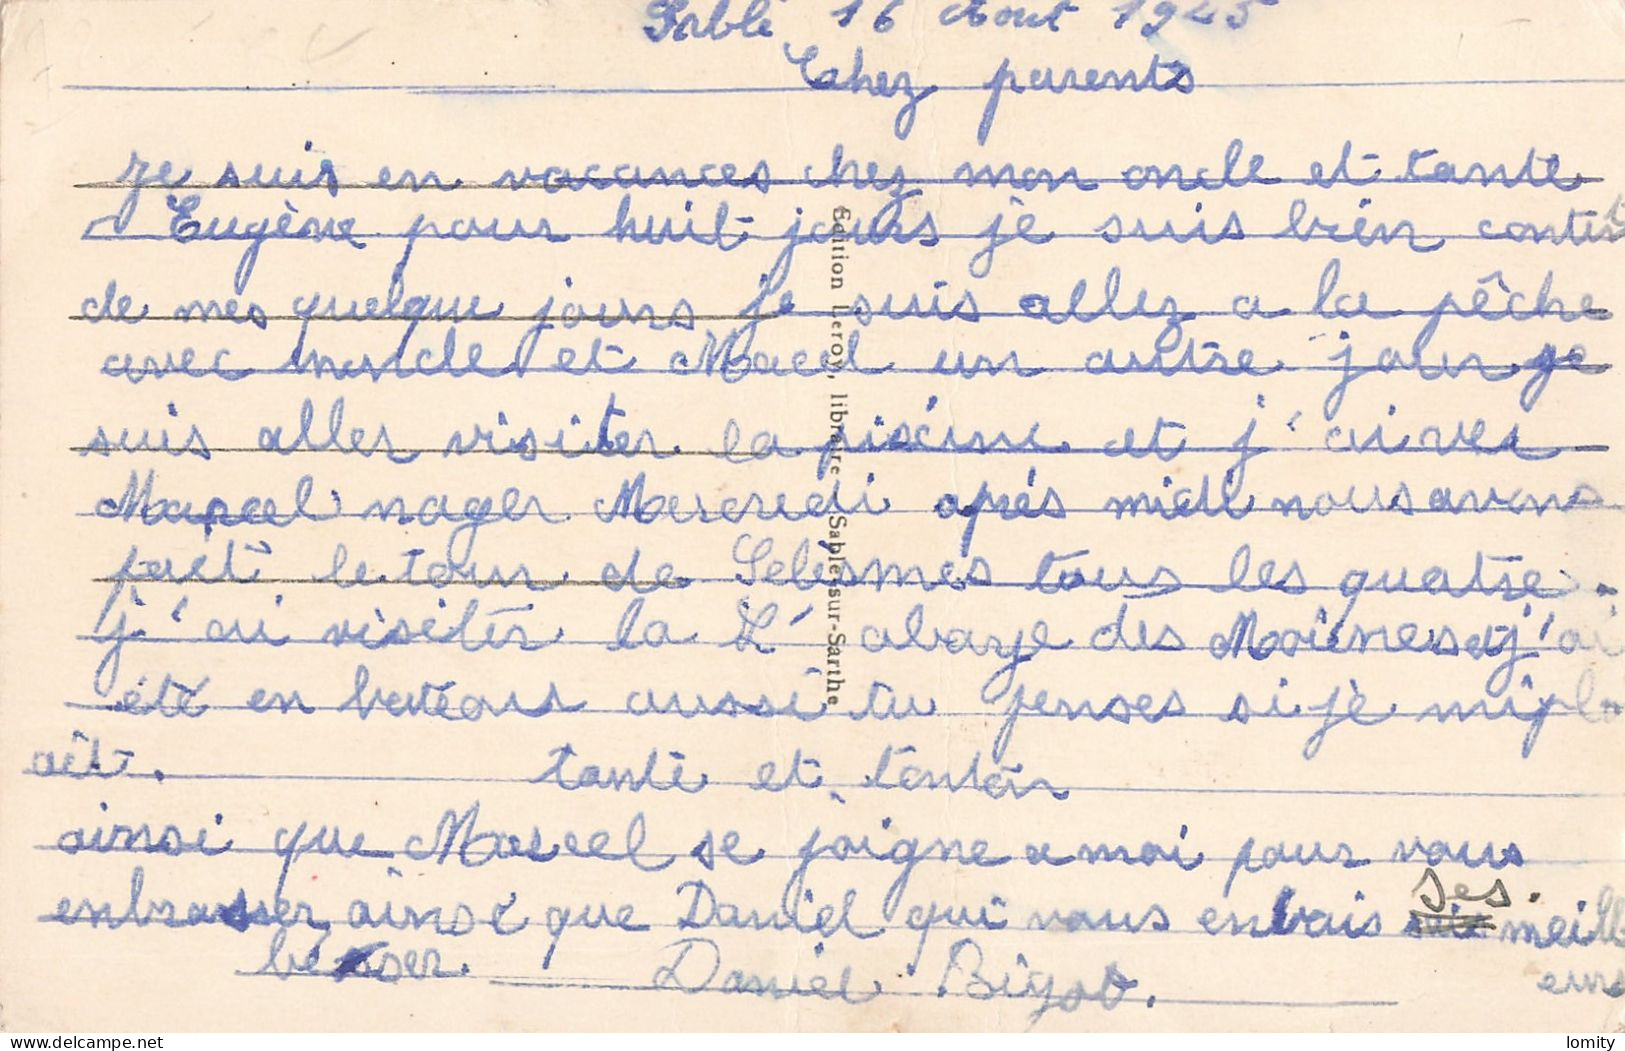 Sablé 16 Aout 1945
Chez parents
je suis en vacances chez mon oncle et tante
Eugène pour huit jours je suis bien content
de mes quelque jours je suis allez a la pêche
avec mondle et Macel un autre jour je
suis aller visiter la piscine et j'ai ver
Marcel nager Mercredi après midi nous avons
fait le tour de Selesmes tous les quatre.
j'ai visiter la L' abaye des Moines et j'ai
été en bateau aussi tu penses si je m'i pla
aît. tante et tonton
ainsi que Marcel se joigne a moi pour vous
enbrasser ainsi que Daniel qui vous envais ses. meill
beser. Daniel Bigot. eurs
Edition Leroy, libraire - Sablé-sur-Sarthe
lomity